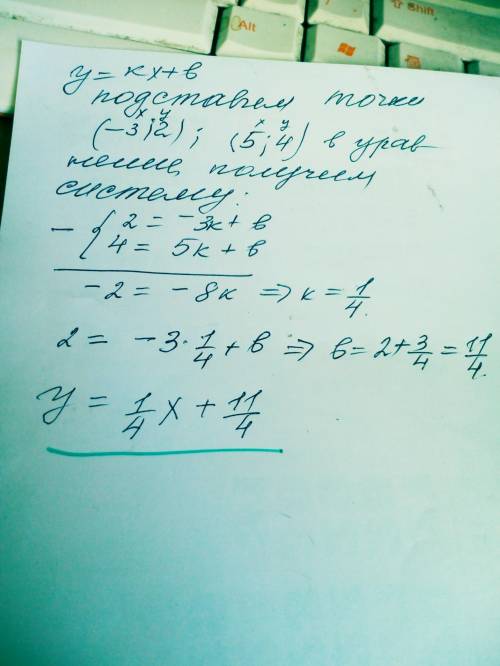 Alt
Shift
y = кx + в
подставим точки
x y x y
(-3; 2); (5; 4) в урав
нение, получим
систему:
- { 2 = -3к + в
4 = 5к + в
-2 = -8к => к = 1/4.
2 = -3 · 1/4 + в => в = 2 + 3/4 = 11/4.
y = 1/4 x + 11/4